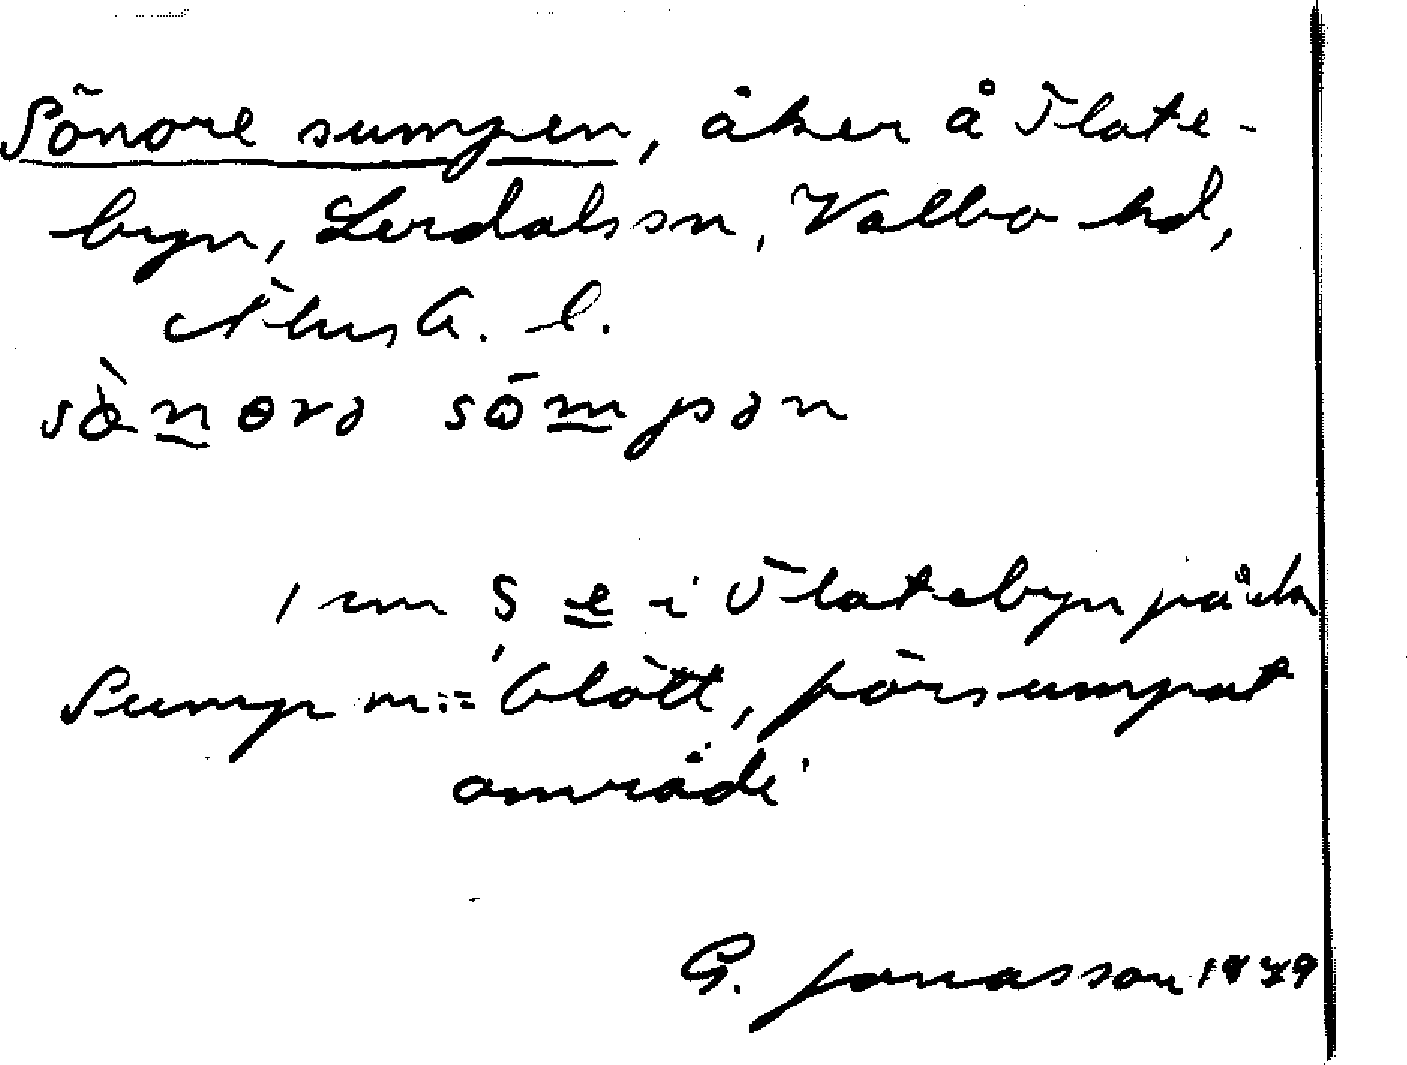 Sönore sumpen, åker å Flate-
byn, Lerdals sn, Valbo hd,
Älvs. l.
sònorə sōmpən
1 cm S e i Flatebyn på
Sump m.= blött, försumpat
område
G. Jonasson 1929